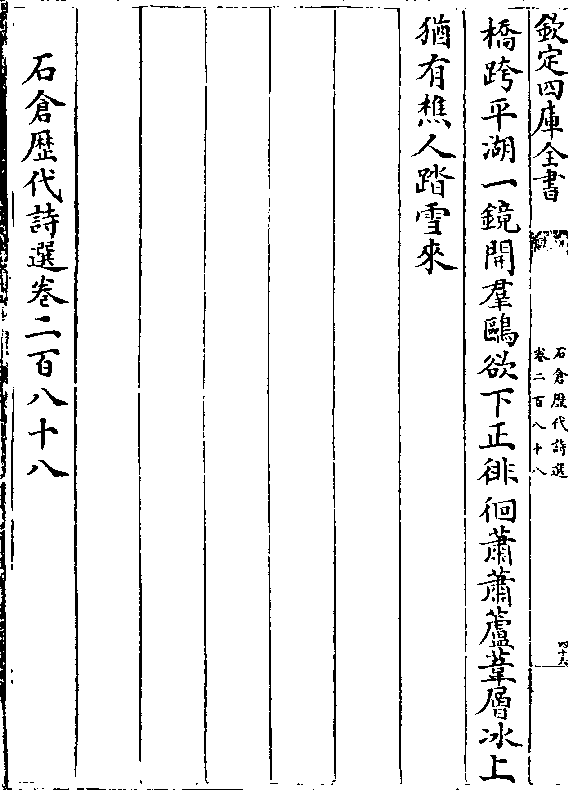 欽定四庫全書
石倉歴代詩選
卷二百八十八
橋跨平湖一鏡開羣鷗欲下正徘徊蕭蕭蘆葦層冰上
猶有樵人踏雪來
石倉歴代詩選卷二百八十八